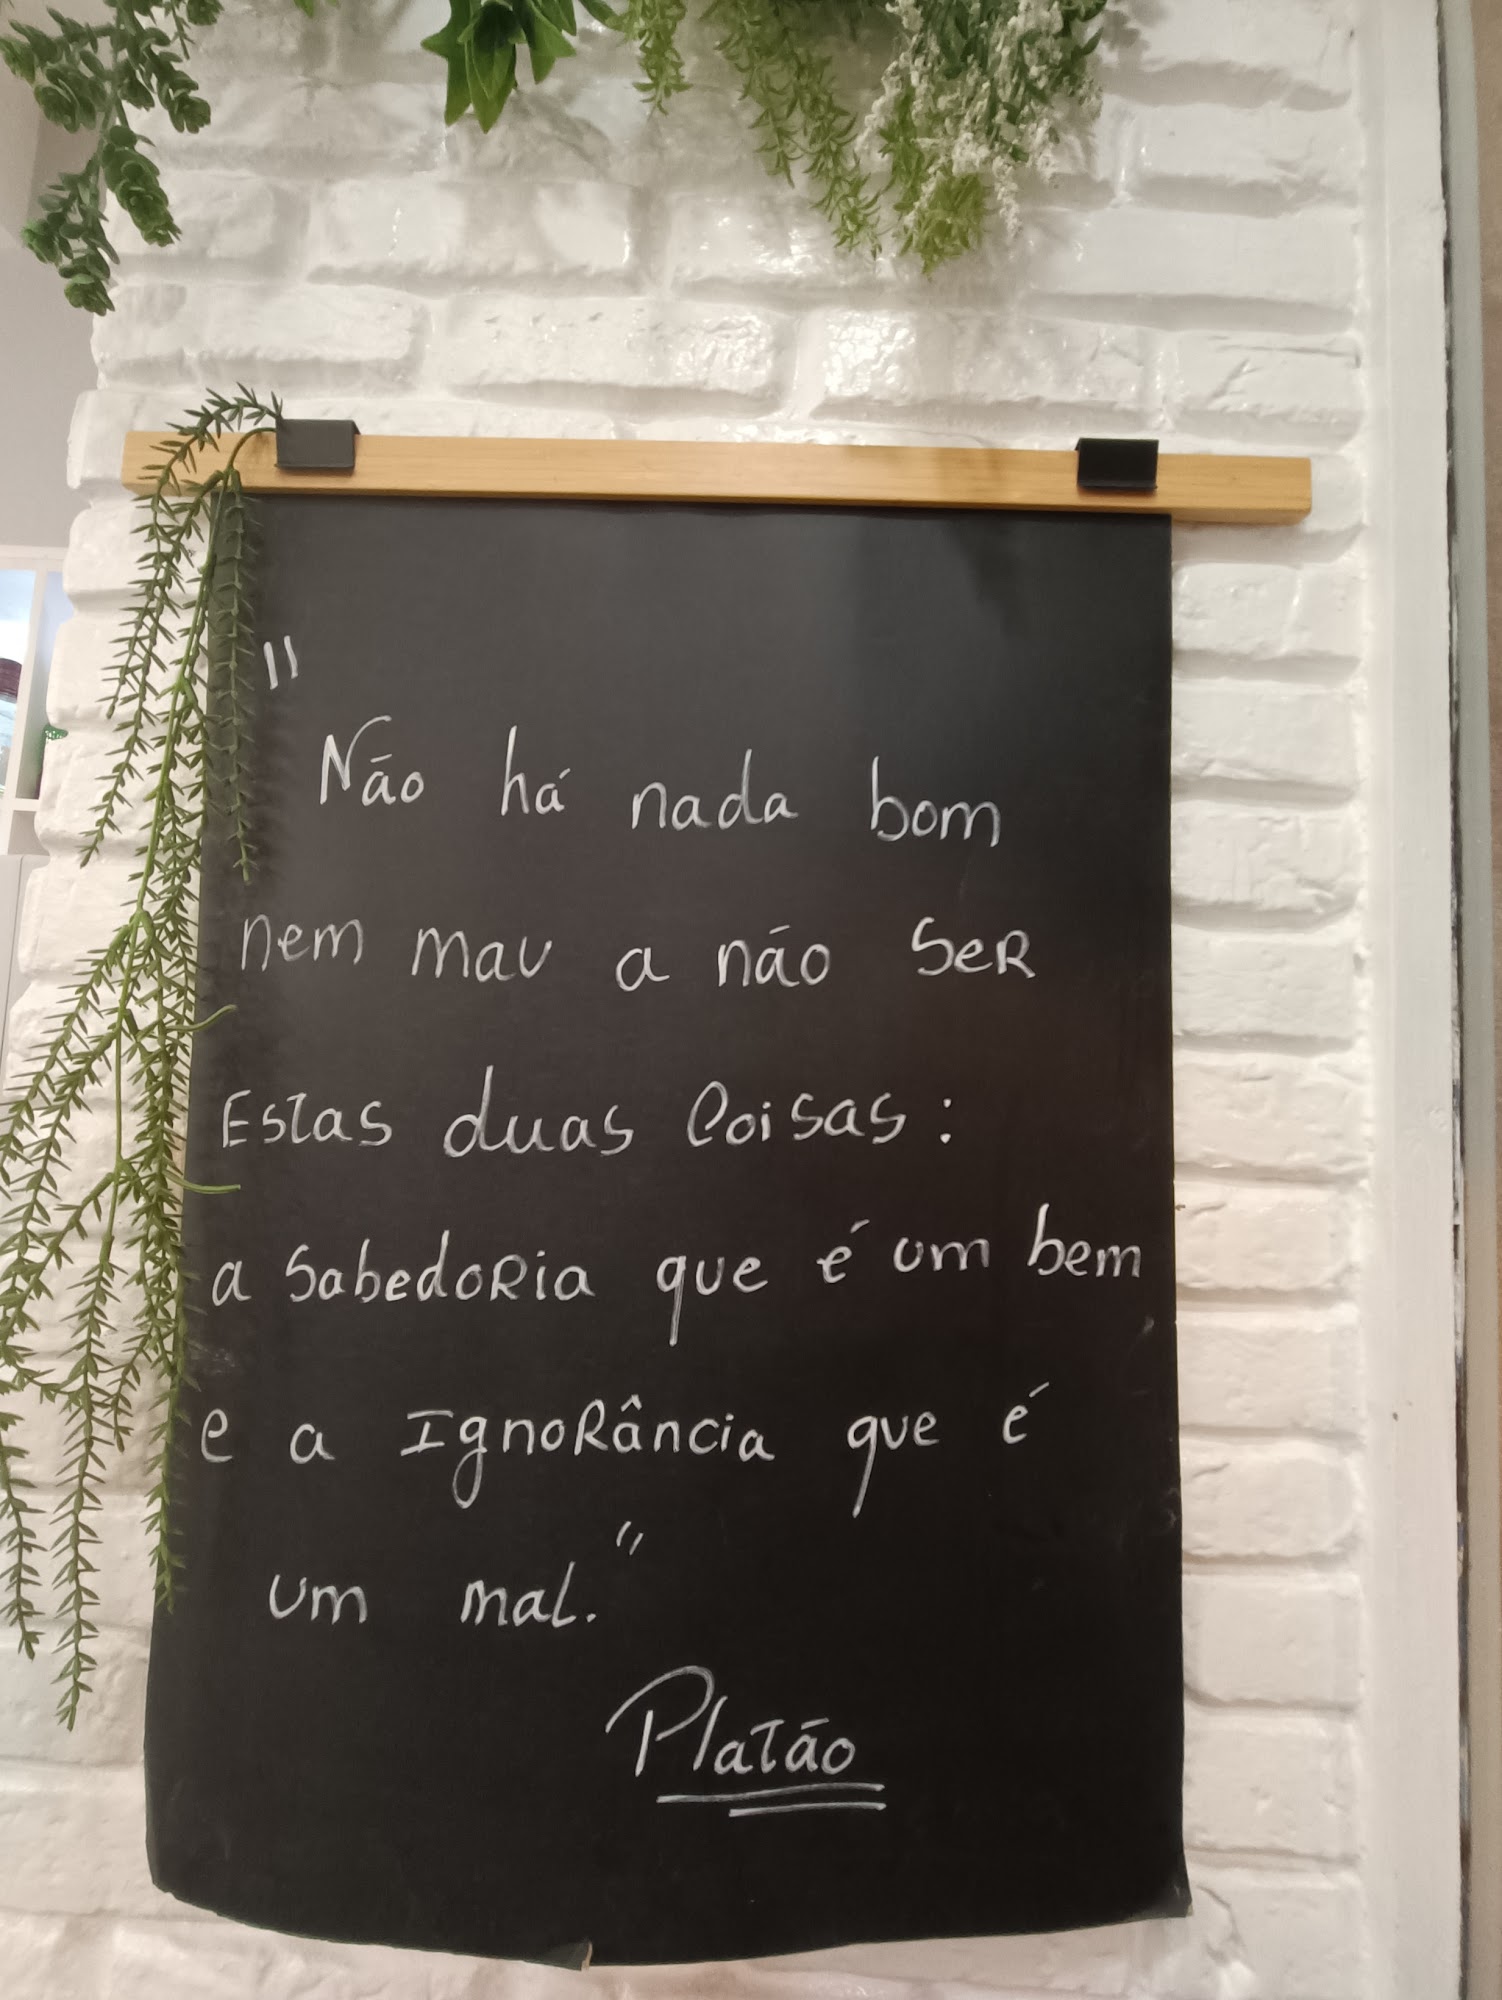 "
Não há nada bom
nem mau a não SeR
Estas duas Coisas:
a SabedoRia que é um bem
e a IgnoRância que é
um mal."
Platão